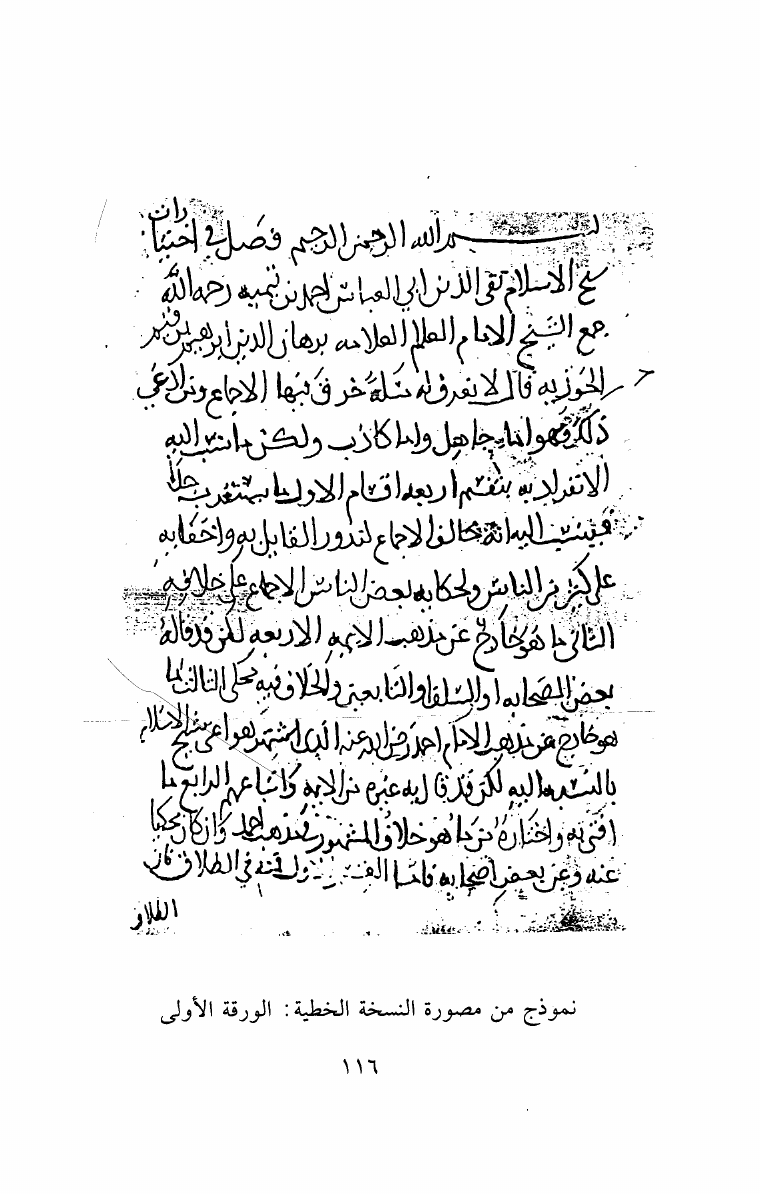 بسم الله الرحمن الرحيم فصل في اختيارات
شيخ الاسلام تقي الدين ابي العباس احمد بن تيميه رحمه الله
جمع الشيخ الامام العالم العلامه برهان الدين ابرهيم بن قيم
الجوزيه قال لا نعرف له مسئلة خرق فيها الاجماع ومن ادعى
ذلك فهو اما جاهل واما كاذب ولكن ما نسب اليه
الانفراد به ينقسم اربعه اقسام الاول ما يستغرب جدا
فينسب اليه انه خالف الاجماع لندور القايل به واخفايه
على كثير من الناس ولحكايه بعض الناس الاجماع على خلافه
الثاني ما هو خارج عن مذهب الايمه الاربعه لكن قد قاله
بعض الصحابه او السلف او التابعين والخلاف فيه محكي الثالث ما
هو خارج عن مذهب الامام احمد رضي الله عنه الذي اشتهر هو اعني شيخ الاسلام
بالنسبه اليه لكن قد قال به غيره من الايمه واتباعهم الرابع ما
افتى به واختاره مما هو خلاف المشهور في مذهب احمد وان كان محكيا
عنه وعن بعض اصحابه فاما القسم الاول فمنه في الطلاق فان
الطلاق
نموذج من مصورة النسخة الخطية: الورقة الأولى
١١٦